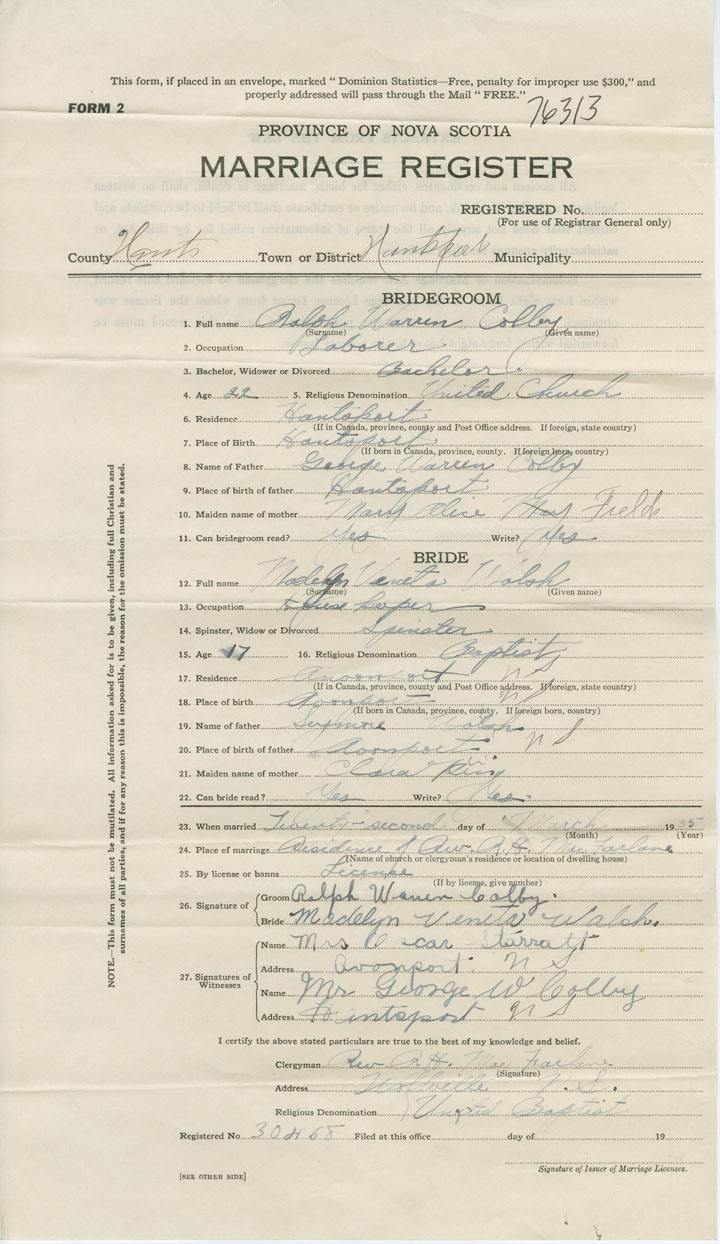 This form, if placed in an envelope, marked " Dominion Statistics—Free, penalty for improper use $300," and
properly addressed will pass through the Mail " FREE."
FORM 2
76313
PROVINCE OF NOVA SCOTIA
MARRIAGE REGISTER
REGISTERED No.
(For use of Registrar General only)
County Hants Town or District Hantsport Municipality
BRIDEGROOM
1. Full name Ralph Warren Colby
(Surname) (Given name)
2. Occupation Laborer
3. Bachelor, Widower or Divorced Bachelor
4. Age 22 5. Religious Denomination United Church
6. Residence Hantsport
(If in Canada, province, county and Post Office address. If foreign, state country)
7. Place of Birth Hantsport
(If born in Canada, province, county. If foreign born, country)
8. Name of Father George Warren Colby
9. Place of birth of father Hantsport
10. Maiden name of mother Mary Alice Fields
11. Can bridegroom read? Yes Write? Yes
BRIDE
12. Full name Madelyn Veneta Walsh
(Surname) (Given name)
13. Occupation House keeper
14. Spinster, Widow or Divorced Spinster
15. Age 17 16. Religious Denomination Baptist
17. Residence Avonport N S
(If in Canada, province, county and Post Office address. If foreign, state country)
18. Place of birth Avonport N S
(If born in Canada, province, county. If foreign born, country)
19. Name of father Walsh
20. Place of birth of father Avonport N S
21. Maiden name of mother Clara King
22. Can bride read? Yes Write? Yes
23. When married Twenty-second day of March 1935
(Month) (Year)
24. Place of marriage Residence of Rev. R. H. MacFarlane
(Name of church or clergyman's residence or location of dwelling house)
25. By license or banns License
(If by license, give number)
26. Signature of Groom Ralph Warren Colby.
Bride Madelyn Veneta Walsh.
27. Signatures of Witnesses
Name Mrs Oscar Starratt
Address Avonport. N S
Name Mr George W Colby
Address Hantsport N S
I certify the above stated particulars are true to the best of my knowledge and belief.
Clergyman Rev R. H. MacFarlane
(Signature)
Address Wolfville N. S.
Religious Denomination United Baptist
Registered No. 30468 Filed at this office day of 19
Signature of Issuer of Marriage Licenses.
[SEE OTHER SIDE]
NOTE.—This form must not be mutilated. All information asked for is to be given, including full Christian and
surnames of all parties, and if for any reason this is impossible, the reason for the omission must be stated.